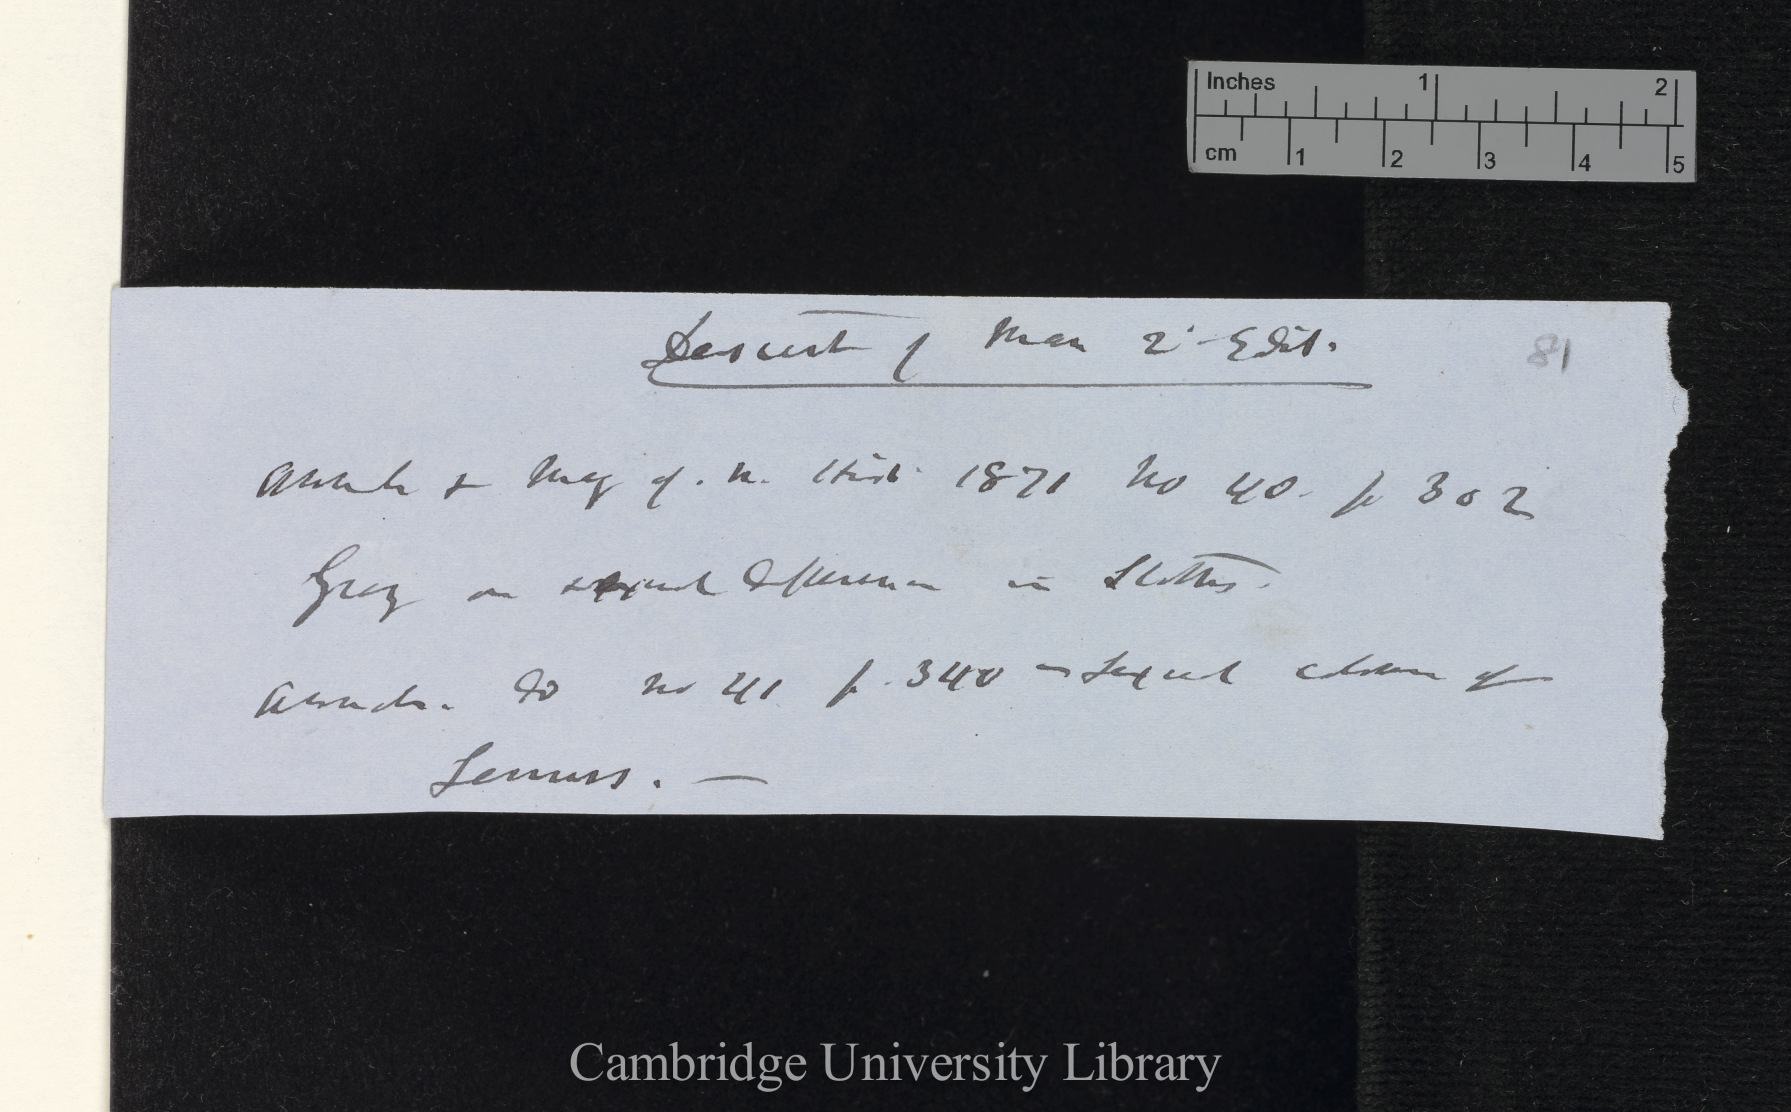 Inches 1 2
cm 1 2 3 4 5
Descent of Man 2d Edit.
81
Annals & Mag of. N. Hist. 1871 No 40. p 302
Gray on sexual difference in Sloths.
Annals. Do No 41 p. 340 — Sexual colour of
Lemurs. —
Cambridge University Library